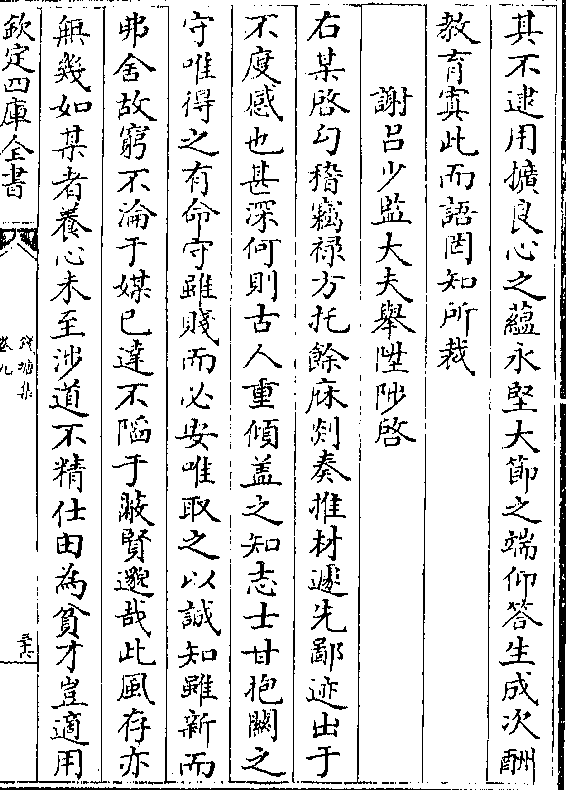 其不逮用擴良心之蘊永堅大節之端仰答生成次酬
教育寘此而語罔知所裁
謝呂少監大夫舉陞陟啓
右某啓勾稽竊禄方托餘庥剡奏推材遽先鄙迹出于
不度感也甚深何則古人重傾盖之知志士甘抱關之
守唯得之有命守雖賤而必安唯取之以誠知雖新而
弗舍故窮不淪于媒已達不陷于蔽賢邈哉此風存亦
無幾如某者養心未至涉道不精仕由為貧才豈適用
欽定四庫全書
錢塘集
卷九